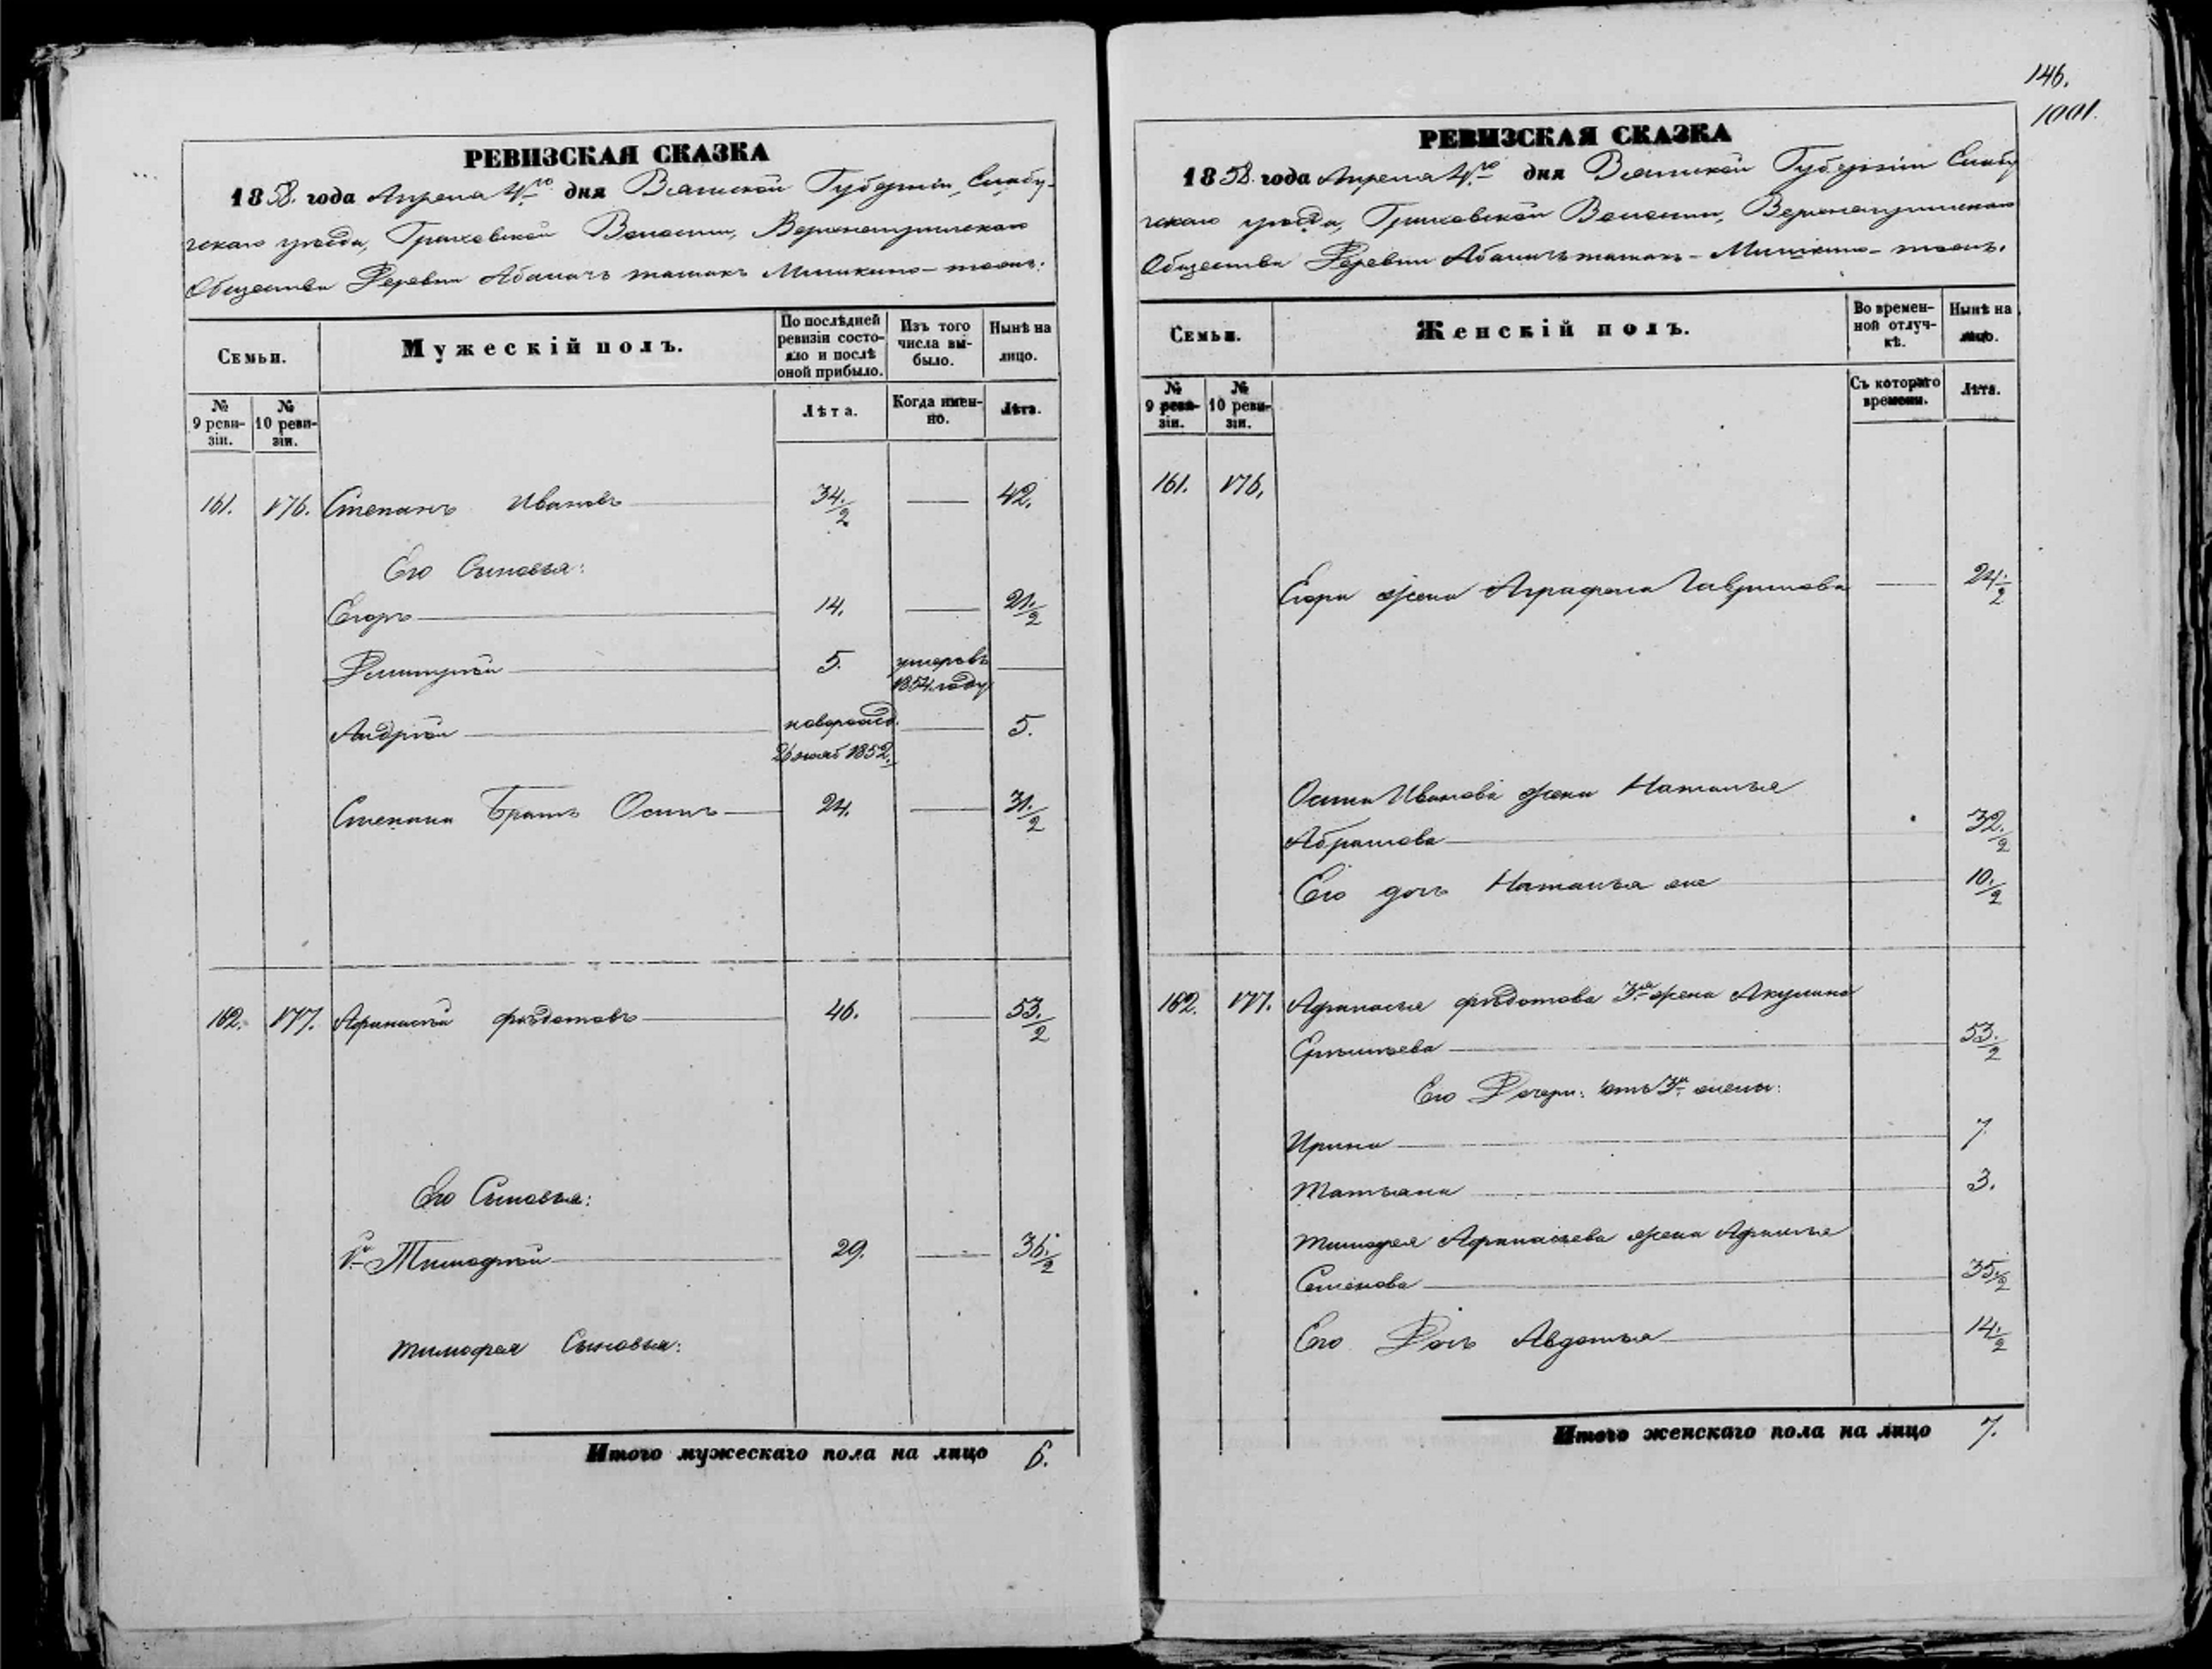 146.
1001.
РЕВИЗСКАЯ СКАЗКА
1858. года Апреля 4го дня Вятской Губерніи, Елабу-
гскаго уѣзда, Граховской Волости,
Общества Деревни
Семьи.
Мужескій полъ.
По послѣдней ревизіи состояло и послѣ оной прибыло.
Изъ того числа выбыло.
Нынѣ на лицо.
№ 9 ревизіи.
№ 10 ревизіи.
Лѣта.
Когда именно.
Лѣта.
161. 176. Степанъ Ивановъ 34.½ — 42.
Его Сыновья:
Егоръ 14. — 21.½
Дмитрій 5. умеръ въ 1854 году —
Андрей новорожд. 26 нояб 1852. — 5.
Степана Братъ Осипъ 24. — 31.½
162. 177. Афанасій Ѳедотовъ 46. — 53.½
Его Сыновья:
1й Тимофей 29. — 36.½
Тимофея Сыновья:
Итого мужескаго пола на лицо 6.
РЕВИЗСКАЯ СКАЗКА
1858. года Апреля 4го дня Вятской Губерніи Елабу
гскаго уѣзда, Граховской Волости,
Общества Деревни
Семьи.
Женскій полъ.
Во временной отлучкѣ.
Нынѣ на лицо.
№ 9 ревизіи.
№ 10 ревизіи.
Съ котораго времени.
Лѣта.
161. 176.
Егора жена Аграфена Гаврилова — 24.½
Осипа Иванова жена Наталья
Абрамова 32.½
Его дочь Наталья же 10.½
162. 177. Афанасья Ѳедотова 3я жена Акулина
53.½
Его Дочери: отъ 3й жены:
Ирина 7
Татьяна 3.
Тимофея Афанасьева жена
Семенова 35.½
Его Дочь Авдотья 14.½
Итого женскаго пола на лицо 7.